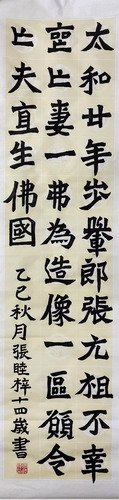 太和廿年步轝郎張元祖不幸
喪亡妻一弗為造像一區願令
亡夫直生佛國
乙巳秋月張睦梓十四歲書